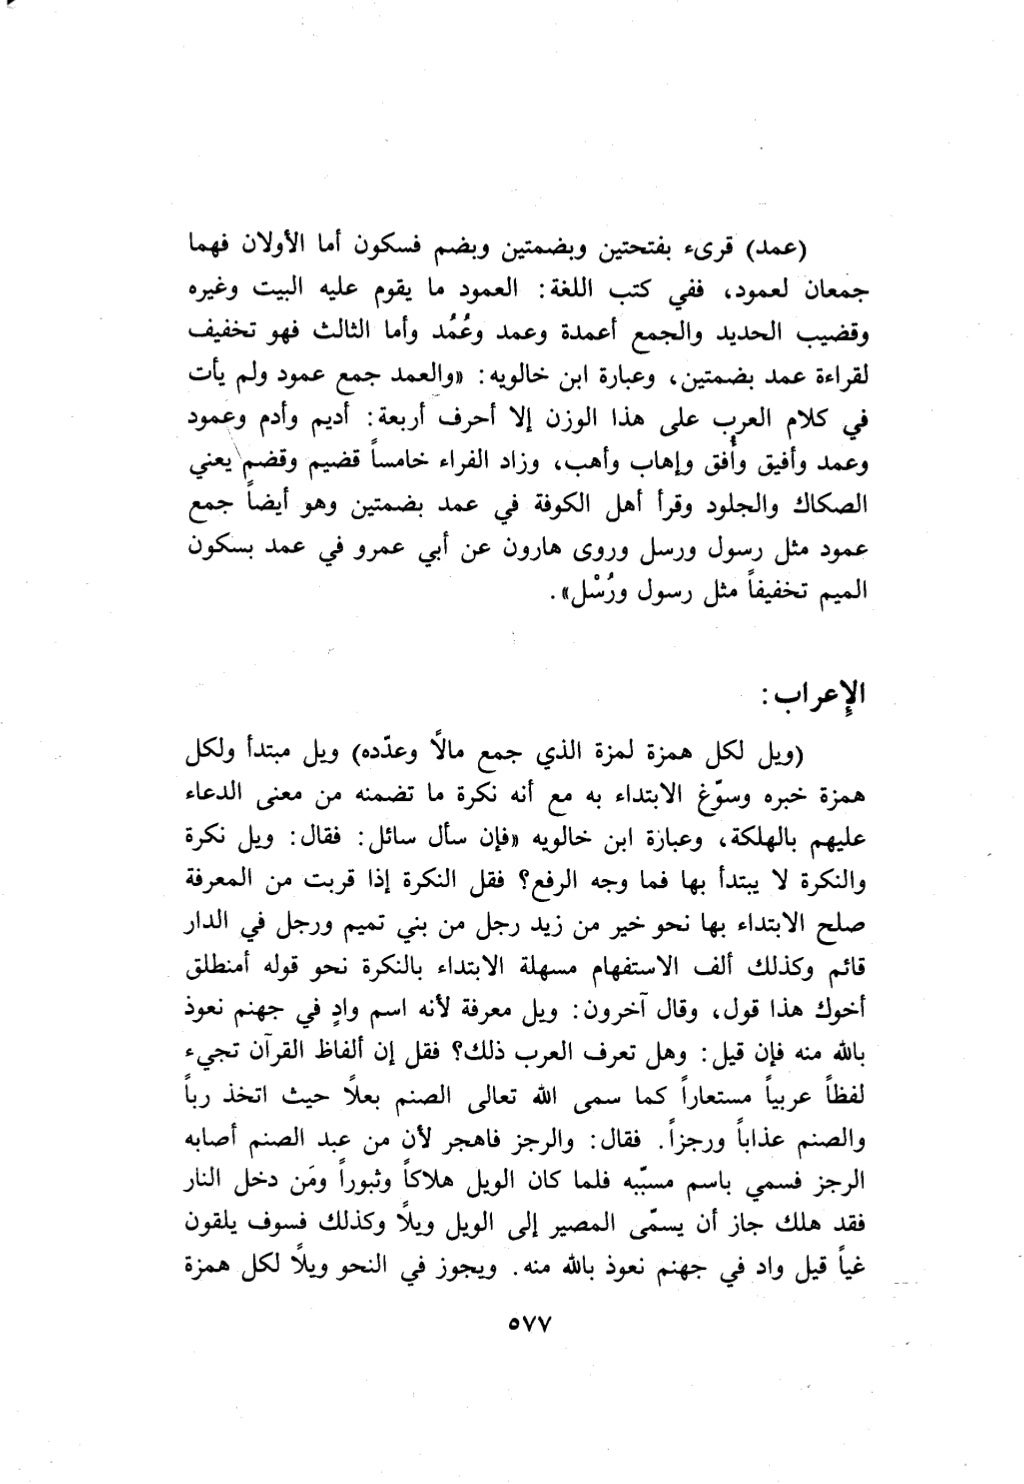 (عمد) قرىء بفتحتين وبضمتين وبضم فسكون أما الأولان فهما
جمعان لعمود، ففي كتب اللغة: العمود ما يقوم عليه البيت وغيره
وقضيب الحديد والجمع أعمدة وعمد وعُمُد وأما الثالث فهو تخفيف
لقراءة عمد بضمتين، وعبارة ابن خالويه: «والعمد جمع عمود ولم يأت
في كلام العرب على هذا الوزن إلا أحرف أربعة: أديم وأدم وعمود
وعمد وأفيق وأُفق وإهاب وأهب، وزاد الفراء خامساً قضيم وقضم يعني
الصكاك والجلود وقرأ أهل الكوفة في عمد بضمتين وهو أيضاً جمع
عمود مثل رسول ورسل وروى هارون عن أبي عمرو في عمد بسكون
الميم تخفيفاً مثل رسول ورُسْل».
الإعراب:
(ويل لكل همزة لمزة الذي جمع مالًا وعدّده) ويل مبتدأ ولكل
همزة خبره وسوّغ الابتداء به مع أنه نكرة ما تضمنه من معنى الدعاء
عليهم بالهلكة، وعبارة ابن خالويه «فإن سأل سائل: فقال: ويل نكرة
والنكرة لا يبتدأ بها فما وجه الرفع؟ فقل النكرة إذا قربت من المعرفة
صلح الابتداء بها نحو خير من زيد رجل من بني تميم ورجل في الدار
قائم وكذلك ألف الاستفهام مسهلة الابتداء بالنكرة نحو قوله أمنطلق
أخوك هذا قول، وقال آخرون: ويل معرفة لأنه اسم وادٍ في جهنم نعوذ
بالله منه فإن قيل: وهل تعرف العرب ذلك؟ فقل إن ألفاظ القرآن تجيء
لفظاً عربياً مستعاراً كما سمى الله تعالى الصنم بعلًا حيث اتخذ رباً
والصنم عذاباً ورجزاً. فقال: والرجز فاهجر لأن من عبد الصنم أصابه
الرجز فسمي باسم مسبّبه فلما كان الويل هلاكاً وثبوراً ومَن دخل النار
فقد هلك جاز أن يسمّى المصير إلى الويل ويلًا وكذلك فسوف يلقون
غياً قيل واد في جهنم نعوذ بالله منه. ويجوز في النحو ويلًا لكل همزة
٥٧٧